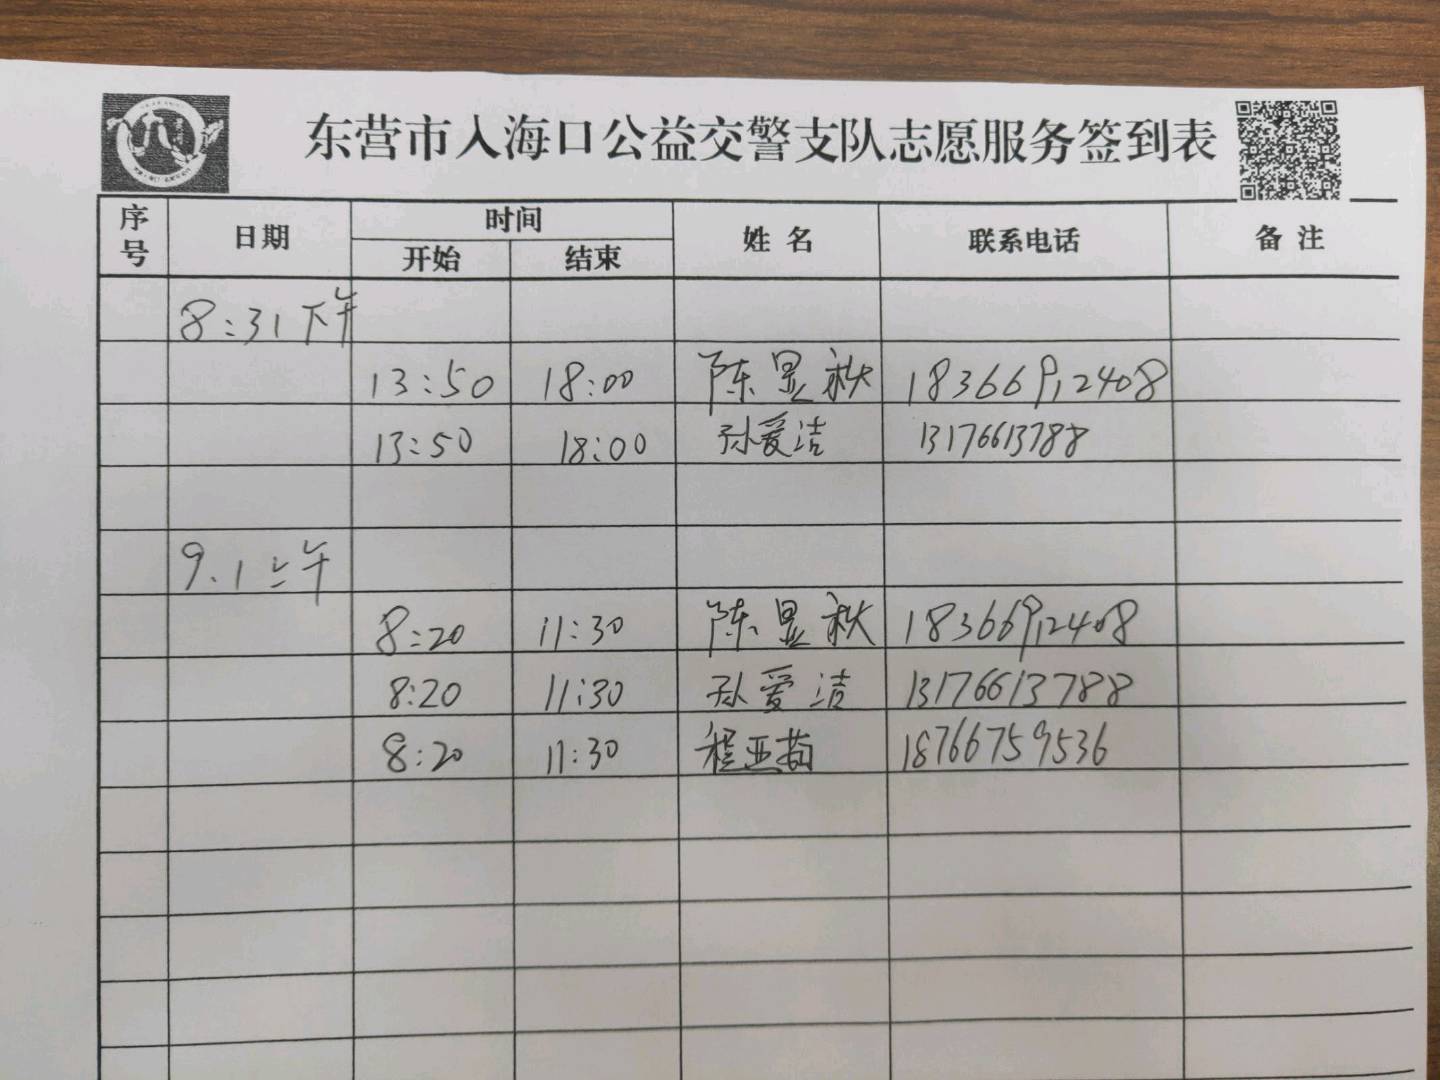 东营市入海口公益交警支队志愿服务签到表
序号 日期 时间 姓名 联系电话 备注
开始 结束
8:31下午
13:50 18:00 陈显秋 18366912408
13:50 18:00 孙爱洁 13176613788
9.1上午
8:20 11:30 陈显秋 18366912408
8:20 11:30 孙爱洁 13176613788
8:20 11:30 程亚茹 18766759536